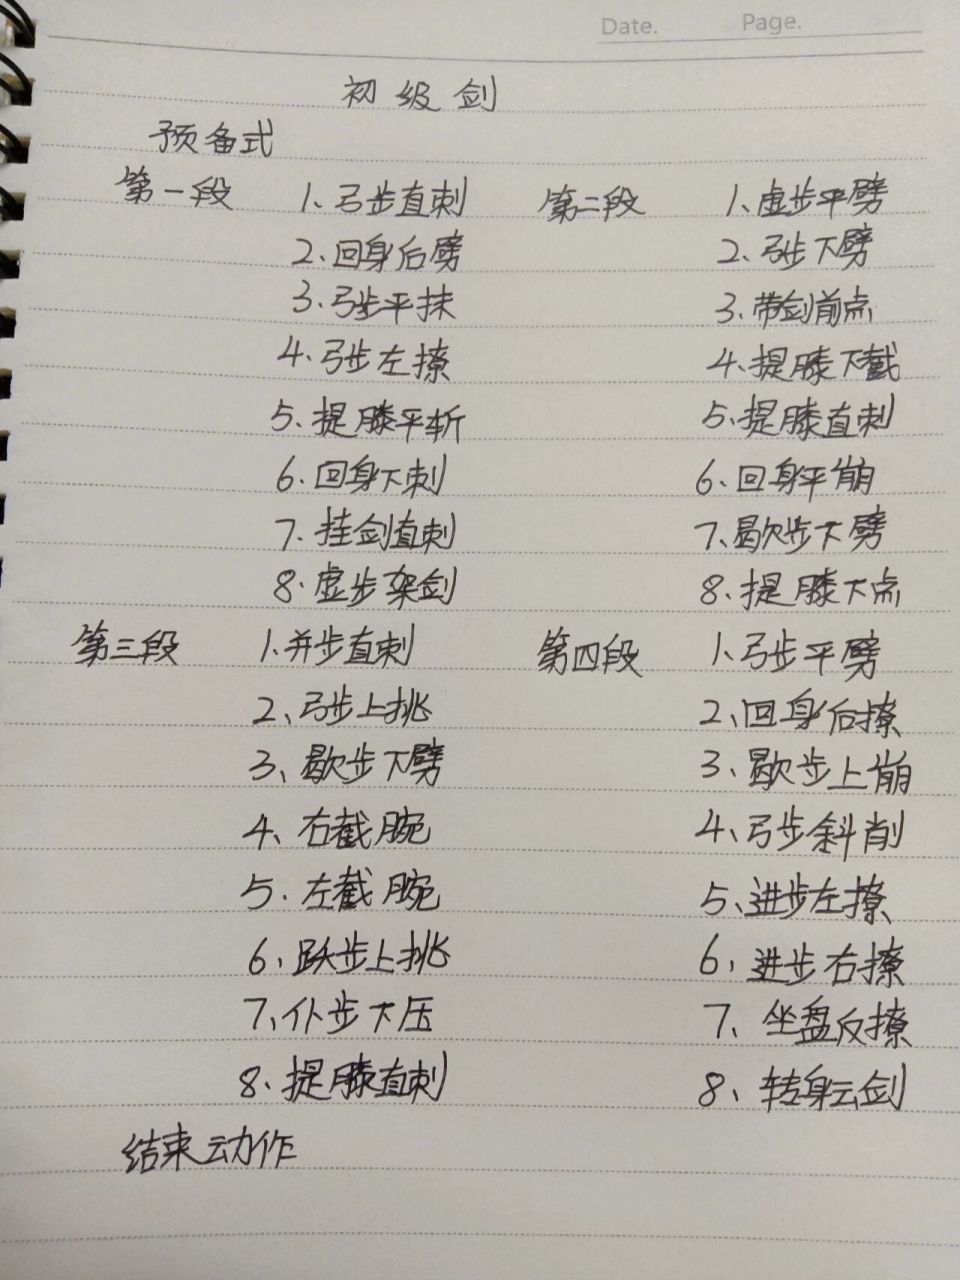 Date. Page.
初级剑
预备式
第一段 1.弓步直刺
2.回身后劈
3.弓步平抹
4.弓步左撩
5.提膝平斩
6.回身下刺
7.挂剑直刺
8.虚步架剑
第二段 1.虚步平劈
2.弓步下劈
3.带剑前点
4.提膝下截
5.提膝直刺
6.回身平崩
7.歇步下劈
8.提膝下点
第三段 1.并步直刺
2、弓步上挑
3、歇步下劈
4、右截腕
5.左截腕
6、跃步上挑
7、仆步下压
8.提膝直刺
第四段 1.弓步平劈
2、回身后撩
3、歇步上崩
4、弓步斜削
5、进步左撩
6、进步右撩
7、坐盘反撩
8、转身云剑
结束动作